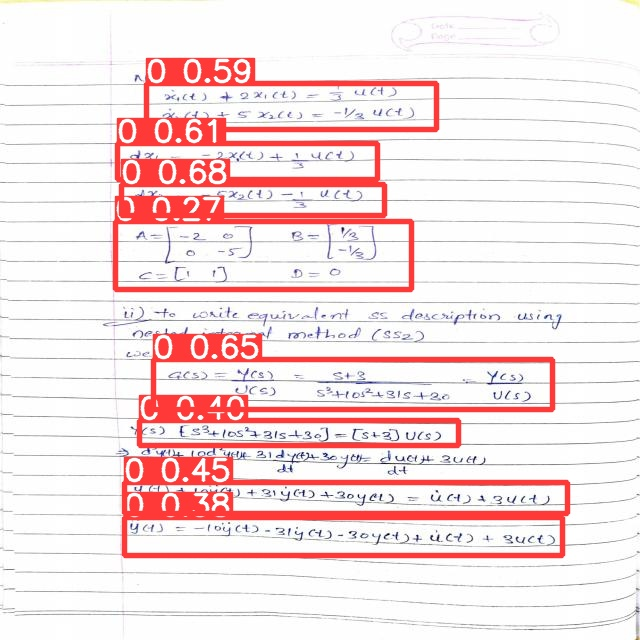 Date
Page
0 0.59
ẋ₁(t) + 2x₁(t) = 1/3 u(t)
ẋ₂(t) + 5x₂(t) = -1/3 u(t)
0 0.61
-2x₁(t) + 1/3 u(t)
0 0.68
5x₂(t) - 1/3 u(t)
0 0.27
A = [-2 0; 0 -5] B = [1/3; -1/3]
C = [1 1] D = 0
ii) to write equivalent ss description using
nested integral method (SS2)
we
0 0.65
G(s) = Y(s)/U(s) = s+3/s³+10s²+31s+30 = Y(s)/U(s)
0 0.40
Y(s) [s³+10s²+31s+30] = [s+3] U(s)
31 dy(t)/dt + 30y(t) = du(t)/dt + 3u(t)
0 0.45
+ 31ẏ(t) + 30y(t) = u̇(t) + 3u(t)
0 0.38
y(t) = -10ÿ(t) - 31ẏ(t) - 30y(t) + u̇(t) + 3u(t)